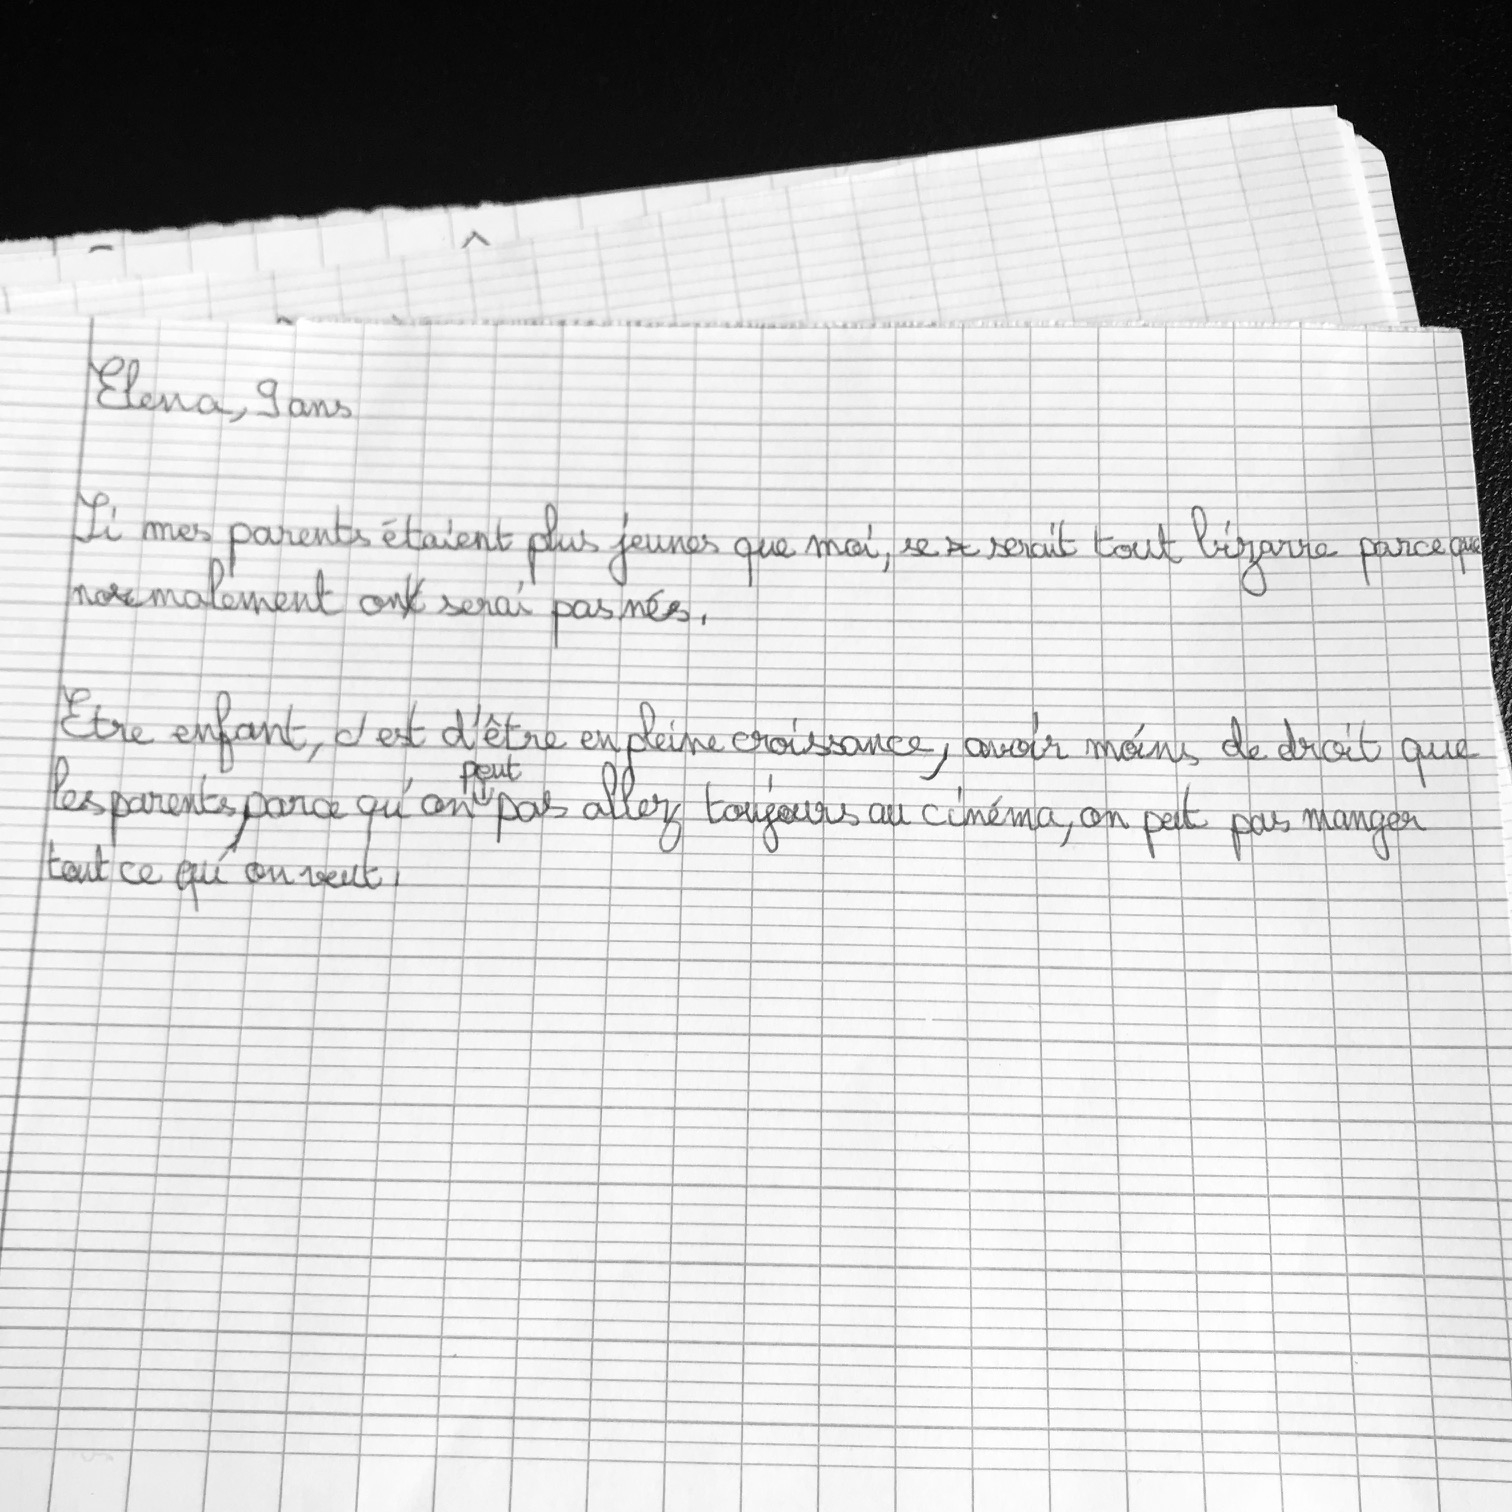 Elena, 9 ans
Si mes parents étaient plus jeunes que moi, se serait tout bizarre parce que
normalement on serai pas nés.
Etre enfant, c'est d'être en pleine croissance, avoir moins de droit que
les parents, parce qu'on peut pas allez toujours au cinéma, on peut pas manger
tout ce qu'on veut.